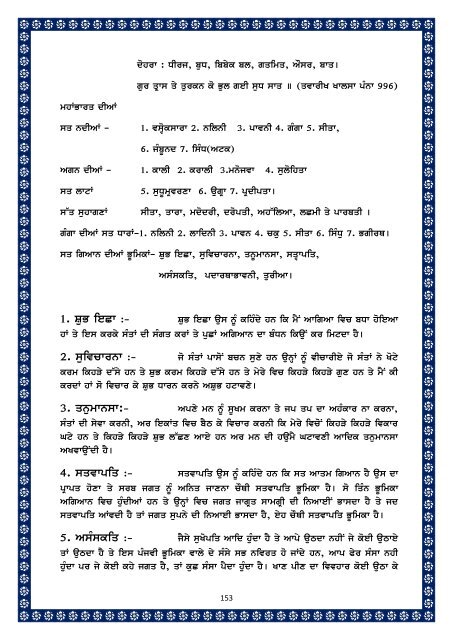 ਦੋਹਰਾ : ਧੀਰਜ, ਬੁਧ, ਬਿਬੇਕ ਬਲ, ਗਤਮਿਤ, ਔਸਰ, ਬਾਤ।
ਗੁਰ ਤ੍ਰਾਸ ਤੇ ਤੁਰਕਨ ਕੋ ਭੁਲ ਗਈ ਸੁਧ ਸਾਤ ॥ (ਤਵਾਰੀਖ ਖਾਲਸਾ ਪੰਨਾ 996)
ਮਹਾਂਭਾਰਤ ਦੀਆਂ
ਸਤ ਨਦੀਆਂ – 1. ਵਸ੍ਵੋਕਸਾਰਾ 2. ਨਲਿਨੀ 3. ਪਾਵਨੀ 4. ਗੰਗਾ 5. ਸੀਤਾ,
6. ਜੰਬੂਨਦ 7. ਸਿੰਧ(ਅਟਕ)
ਅਗਨ ਦੀਆਂ – 1. ਕਾਲੀ 2. ਕਰਾਲੀ 3.ਮਨੋਜਵਾ 4. ਸੁਲੋਹਿਤਾ
ਸਤ ਲਾਟਾਂ 5. ਸੁਧੂਮ੍ਰਵਰਣਾ 6. ਉਗ੍ਰਾ 7. ਪ੍ਰਦੀਪਤਾ।
ਸੱਤ ਸੁਹਾਗਣਾਂ ਸੀਤਾ, ਤਾਰਾ, ਮਦੋਦਰੀ, ਦਰੋਪਤੀ, ਅਹੱਲਿਆ, ਲਛਮੀ ਤੇ ਪਾਰਬਤੀ ।
ਗੰਗਾ ਦੀਆਂ ਸਤ ਧਾਰਾਂ–1. ਨਲਿਨੀ 2. ਲਾਦਿਨੀ 3. ਪਾਵਨ 4. ਚਕੁ 5. ਸੀਤਾ 6. ਸਿੰਧੁ 7. ਭਗੀਰਥ।
ਸਤ ਗਿਆਨ ਦੀਆਂ ਭੂਮਿਕਾਂ– ਸ਼ੁਭ ਇਛਾ, ਸੁਵਿਚਾਰਨਾ, ਤਨੂਮਾਨਸਾ, ਸਤ੍ਵਾਪਤਿ,
ਅਸੰਸਕਤਿ, ਪਦਾਰਥਾਭਾਵਨੀ, ਤੁਰੀਆ।
1. ਸ਼ੁਭ ਇਛਾ :- ਸ਼ੁਭ ਇਛਾ ਉਸ ਨੂੰ ਕਹਿੰਦੇ ਹਨ ਕਿ ਮੈਂ ਆਗਿਆ ਵਿਚ ਬਧਾ ਹੋਇਆ
ਹਾਂ ਤੇ ਇਸ ਕਰਕੇ ਸੰਤਾਂ ਦੀ ਸੰਗਤ ਕਰਾਂ ਤੇ ਪੁਛਾਂ ਅਗਿਆਨ ਦਾ ਬੰਧਨ ਕਿਉਂ ਕਰ ਮਿਟਦਾ ਹੈ।
2. ਸੁਵਿਚਾਰਨਾ :- ਜੋ ਸੰਤਾਂ ਪਾਸੋਂ ਬਚਨ ਸੁਣੇ ਹਨ ਉਨ੍ਹਾਂ ਨੂੰ ਵੀਚਾਰੀਏ ਜੋ ਸੰਤਾਂ ਨੇ ਖੋਟੇ
ਕਰਮ ਕਿਹੜੇ ਦੱਸੇ ਹਨ ਤੇ ਸ਼ੁਭ ਕਰਮ ਕਿਹੜੇ ਦੱਸੇ ਹਨ ਤੇ ਮੇਰੇ ਵਿਚ ਕਿਹੜੇ ਕਿਹੜੇ ਗੁਣ ਹਨ ਤੇ ਮੈਂ ਕੀ
ਕਰਦਾਂ ਹਾਂ ਸੋ ਵਿਚਾਰ ਕੇ ਸ਼ੁਭ ਧਾਰਨ ਕਰਨੇ ਅਸ਼ੁਭ ਹਟਾਵਣੇ।
3. ਤਨੁਮਾਨਸਾ:- ਅਪਣੇ ਮਨ ਨੂੰ ਸੂਖਮ ਕਰਨਾ ਤੇ ਜਪ ਤਪ ਦਾ ਅਹੰਕਾਰ ਨਾ ਕਰਨਾ,
ਸੰਤਾਂ ਦੀ ਸੇਵਾ ਕਰਨੀ, ਅਰ ਇਕਾਂਤ ਵਿਚ ਬੈਠ ਕੇ ਵਿਚਾਰ ਕਰਨੀ ਕਿ ਮੇਰੇ ਵਿਚੋਂ ਕਿਹੜੇ ਕਿਹੜੇ ਵਿਕਾਰ
ਘਟੇ ਹਨ ਤੇ ਕਿਹੜੇ ਕਿਹੜੇ ਸ਼ੁਭ ਲੱਛਣ ਆਏ ਹਨ ਅਰ ਮਨ ਦੀ ਹਉਮੈ ਘਟਾਵਣੀ ਆਦਿਕ ਤਨੁਮਾਨਸਾ
ਅਖਵਾਉਂਦੀ ਹੈ।
4. ਸਤਵਾਪਤਿ :- ਸਤਵਾਪਤਿ ਉਸ ਨੂੰ ਕਹਿੰਦੇ ਹਨ ਕਿ ਸਤ ਆਤਮ ਗਿਆਨ ਹੈ ਉਸ ਦਾ
ਪ੍ਰਾਪਤ ਹੋਣਾ ਤੇ ਸਰਬ ਜਗਤ ਨੂੰ ਅਨਿਤ ਜਾਣਨਾ ਚੌਥੀ ਸਤਵਾਪਤਿ ਭੂਮਿਕਾ ਹੈ। ਸੋ ਤਿੰਨ ਭੂਮਿਕਾ
ਅਗਿਆਨ ਵਿਚ ਹੁੰਦੀਆਂ ਹਨ ਤੇ ਉਨ੍ਹਾਂ ਵਿਚ ਜਗਤ ਜਾਗ੍ਰਤ ਸਾਮਗ੍ਰੀ ਦੀ ਨਿਆਈਂ ਭਾਸਦਾ ਹੈ ਤੇ ਜਦ
ਸਤਵਾਪਤਿ ਆਂਵਦੀ ਹੈ ਤਾਂ ਜਗਤ ਸੁਪਨੇ ਦੀ ਨਿਆਈ ਭਾਸਦਾ ਹੈ, ਏਹ ਚੌਥੀ ਸਤਵਾਪਤਿ ਭੂਮਿਕਾ ਹੈ।
5. ਅਸੰਸਕਤਿ :- ਜੈਸੇ ਸੁਖੋਪਤਿ ਆਦਿ ਹੁੰਦਾ ਹੈ ਤੇ ਆਪੇ ਉਠਦਾ ਨਹੀਂ ਜੇ ਕੋਈ ਉਠਾਏ
ਤਾਂ ਉਠਦਾ ਹੈ ਤੇ ਇਸ ਪੰਜਵੀ ਭੂਮਿਕਾ ਵਾਲੇ ਦੇ ਸੰਸੇ ਸਭ ਨਵਿਰਤ ਹੋ ਜਾਂਦੇ ਹਨ, ਆਪ ਫੇਰ ਸੰਸਾ ਨਹੀ
ਹੁੰਦਾ ਪਰ ਜੇ ਕੋਈ ਕਹੇ ਜਗਤ ਹੈ, ਤਾਂ ਕੁਛ ਸੰਸਾ ਪੈਦਾ ਹੁੰਦਾ ਹੈ। ਖਾਣ ਪੀਣ ਦਾ ਵਿਵਹਾਰ ਕੋਈ ਉਠਾ ਕੇ
153